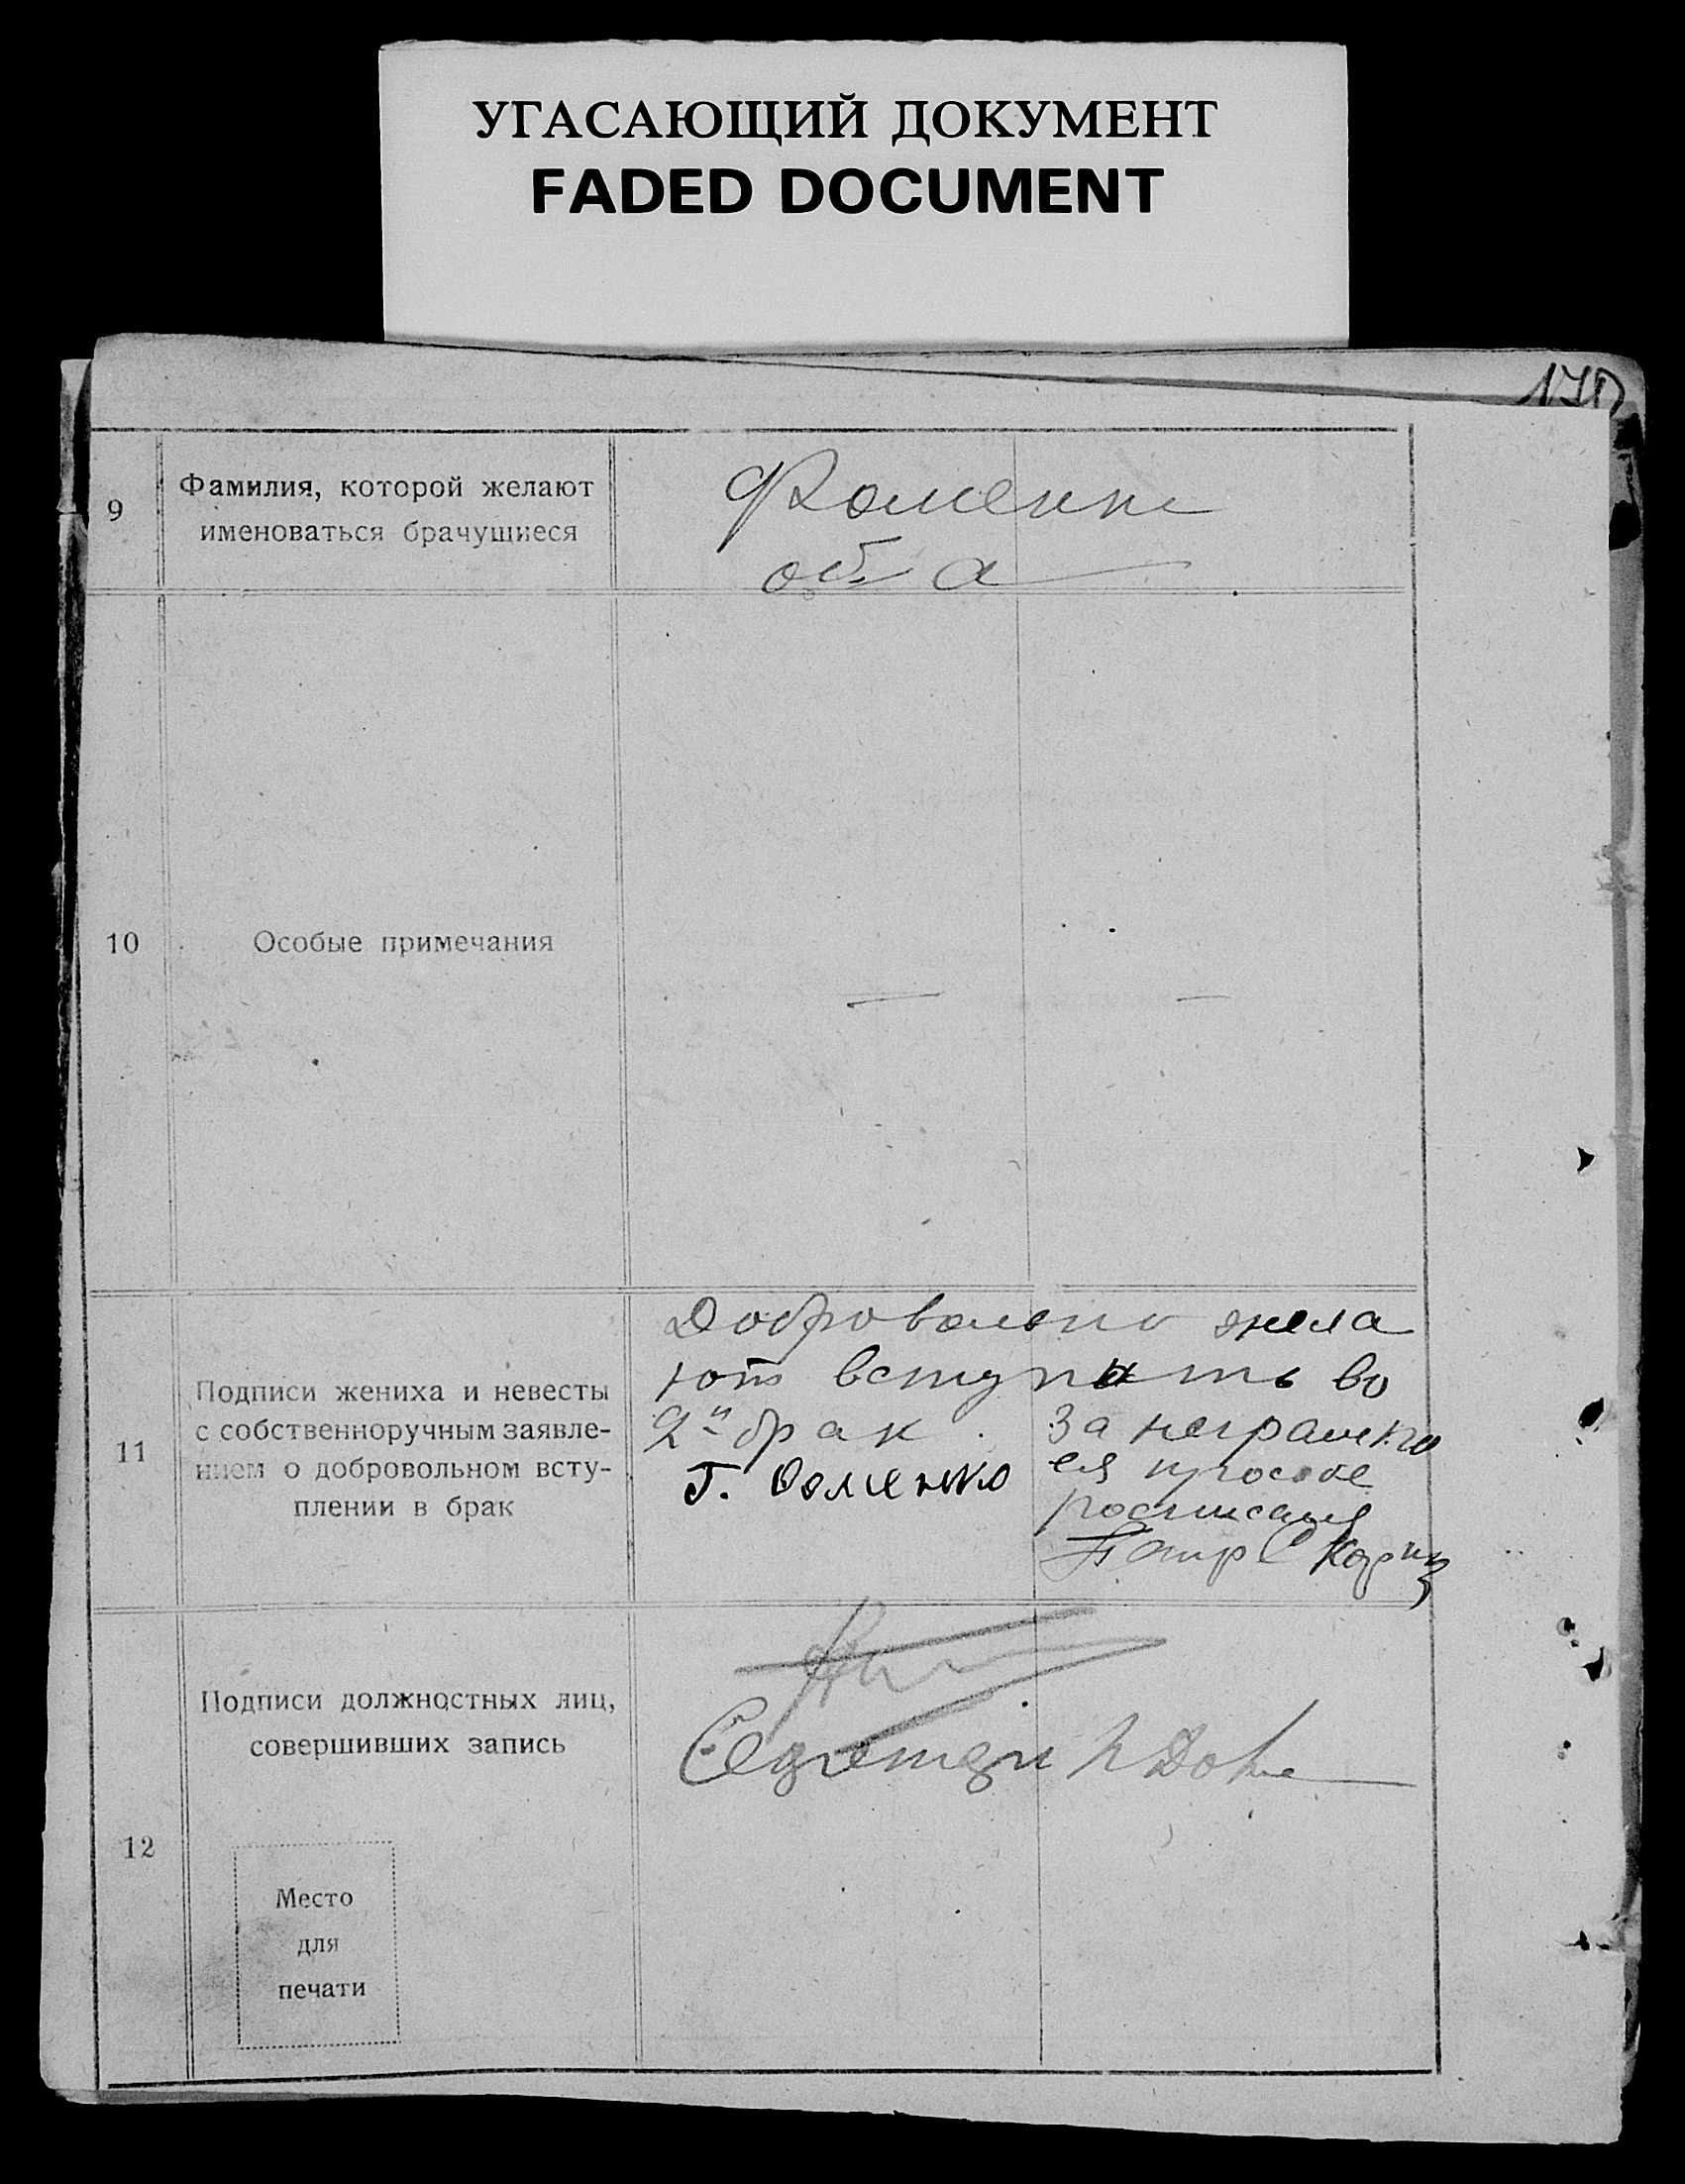 УГАСАЮЩИЙ ДОКУМЕНТ
FADED DOCUMENT
9
Фамилия, которой желают
именоваться брачущиеся
Фоменко
оба
10
Особые примечания
11
Подписи жениха и невесты
с собственноручным заявле-
нием о добровольном всту-
плении в брак
Добровольно жела
ют вступить во
2й брак.
Г. Фоменко
За неграмотно
ея просьбе
12
Подписи должностных лиц,
совершивших запись
Место
для
печати